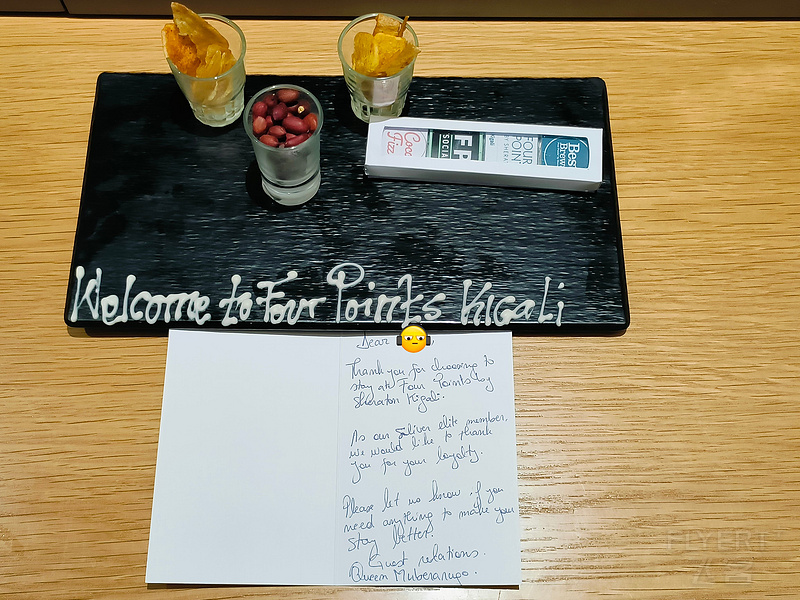 Coco
Fizz
SOCIAL
FOUR
POIN
BY SHERA
Best
Brew
Welcome to Four Points Kigali
Dear
Thank you for choosing to
stay at Four Points by
Sheraton Kigali.
As our Silver elite member,
we would like to thank
you for your loyalty.
Please let us know if you
need anything to make your
stay better.
Guest relations.
Queen
FLYERT